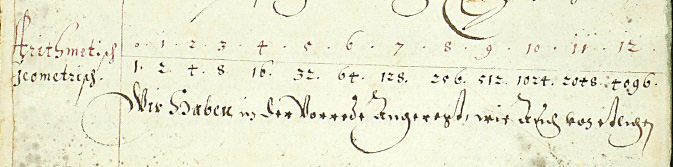 Arithmetisch 0 · 1 · 2 · 3 · 4 · 5 · 6 · 7 · 8 · 9 · 10 · 11 · 12 ·
geometrisch · 1 · 2 · 4 · 8 · 16 · 32 · 64 · 128 · 256 · 512 · 1024 · 2048 · 4096 ·
Wir haben in der Vorrede angeregt, wie auch von etlichen